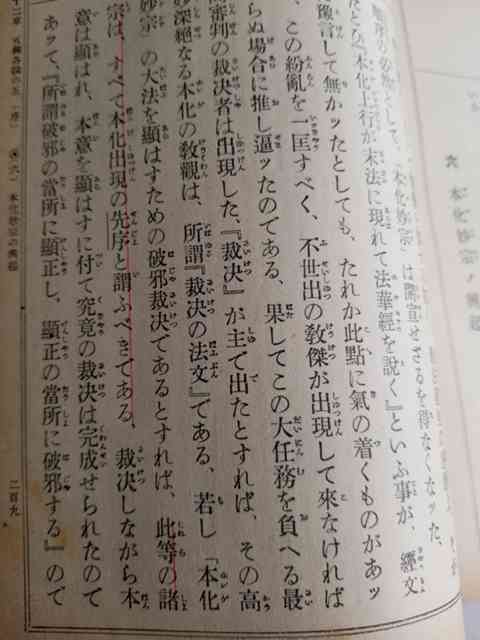 順序の必然として、『本化妙宗』は開宣せざるを得なくなッた、
たとひ『本化上行が末法に現れて法華經を說く』といふ事が、經文
豫言して無かッたとしても、たれか此點に氣の着くものがあッ
、この紛亂を一匡すべく、不世出の敎傑が出現して來なければ
らぬ場合に推し逼ッたのである、果してこの大任務を負へる最
審判の裁決者は出現した、『裁決』が主で出たとすれば、その高
妙深絕なる本化の敎觀は、所謂『裁決の法文』である、若し「本化
妙宗」の大法を顯はすための破邪裁決であるとすれば、此等の諸
宗は、すべて本化出現の先序と謂ふべきである、裁決しながら本
意は顯はれ、本意を顯はすに付て究竟の裁決は完成せられたので
あッて、『所謂破邪の當所に顯正し、顯正の當所に破邪する』ので
十二章 五綱各論の五（序） （六）本化妙宗の興起
二百九